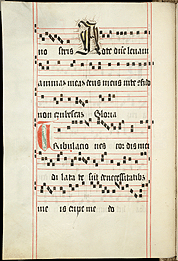 no stris A d te dñe levavi
animam meam deus meus in te cõfido
non erubescam Gloria
Tribulatio nes cor dis mei
di lata te sūt de necessitatibz
me is eripe me do